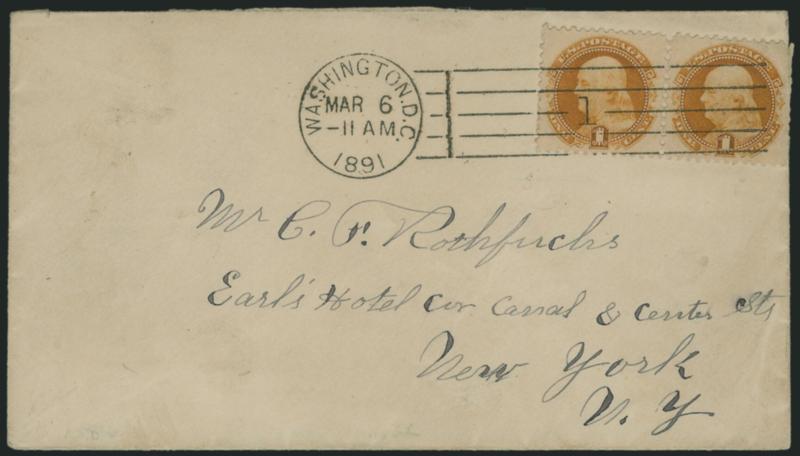 WASHINGTON, D.C.
MAR 6
-11 AM
1891
1
U.S. POSTAGE
1
U.S. POSTAGE
1
Mr C. F. Rothfuchs
Earl's Hotel cor Canal & Center Sts
New York
N. Y